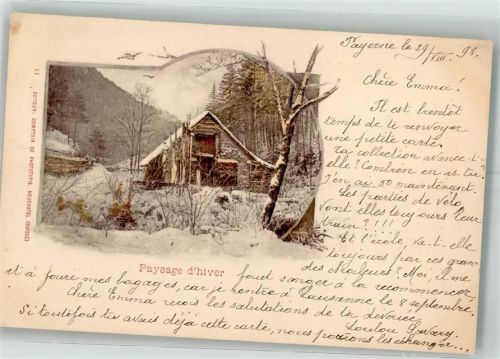 Payerne le 29/VIII. 98.
Chère Emma!
Il est bientôt
temps de te renvoyer
une petite carte.
Ta collection avance-t-
elle? Combien en as-tu?
J'en ai 50 maintenant.
Les parties de vélo
vont elles toujours leur
train? !!!
Et l'école, va-t-elle
toujours par ces gran
des chaleurs? Moi, il me
faut songer à la recommencer,
et à faire mes bagages, car je rentre à Lausanne le 8 septembre.
Chère Emma reçois les salutations de ta dévouée
Loulou
Si toutefois tu avais déjà cette carte, nous pourrions les échanger...
Paysage d'hiver
11 EDITEUR: COMPTOIR DE PHOTOTYPIE, NEUCHATEL (SUISSE)